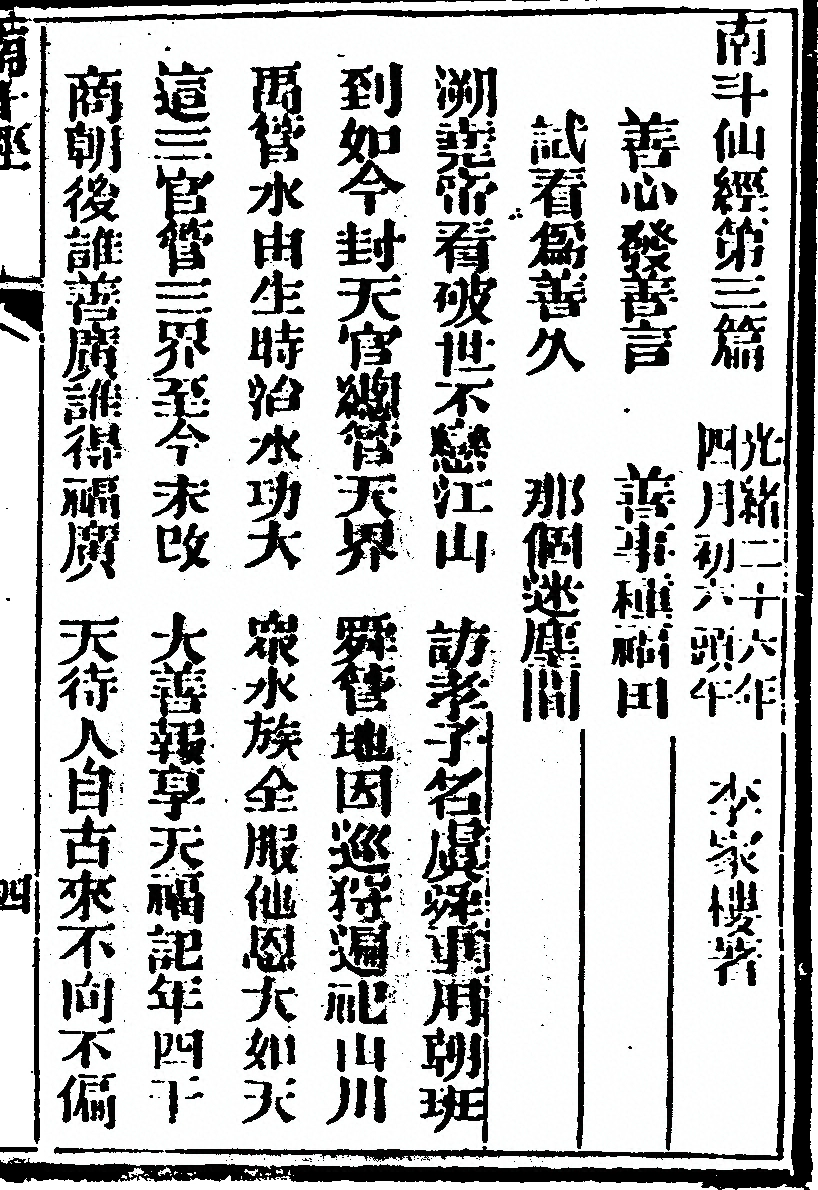 南斗仙經第三篇 光緒二十六年四月初六頭午 李家樓著
善心發善言 善事種福田
試看爲善久 那個迷塵間
溯堯帝看破世不戀江山 訪孝子名虞舜重用朝班
到如今封天官總管天界 舜管地因巡狩遍祀山川
禹管水由生時治水功大 衆水族全服他恩大如天
這三官管三界至今未改 大善報享天福記年四千
商朝後誰善廣誰得福廣 天待人自古來不向不偏
南斗經
四